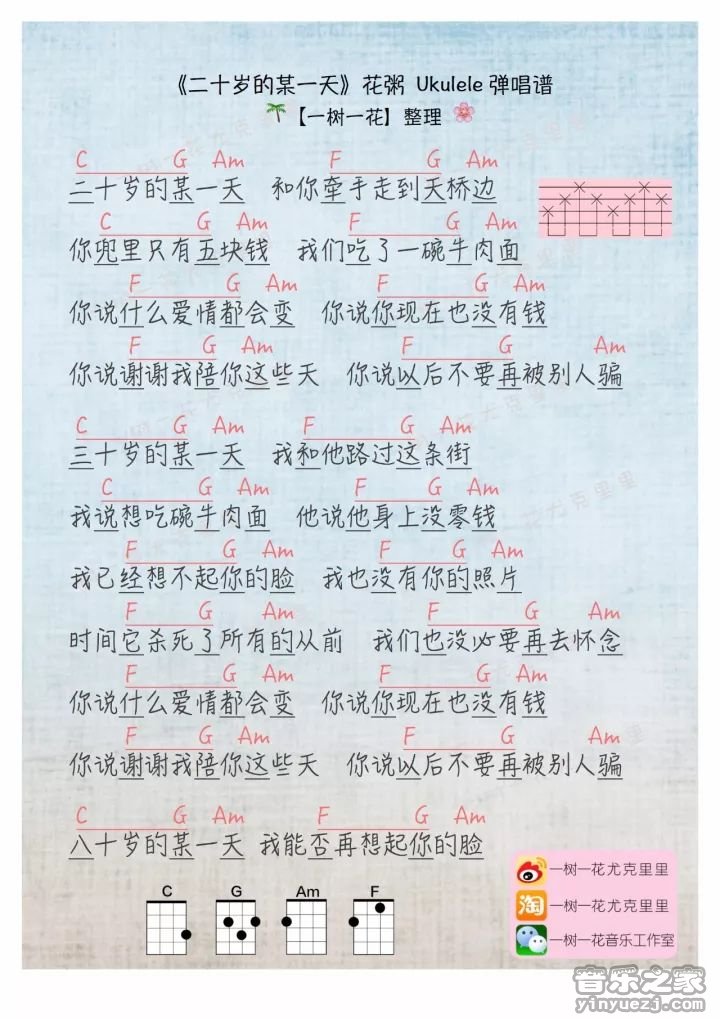 《二十岁的某一天》花粥 Ukulele 弹唱谱
【一树一花】整理
C G Am F G Am
二十岁的某一天 和你牵手走到天桥边
C G Am F G Am
你兜里只有五块钱 我们吃了一碗牛肉面
F G Am F G Am
你说什么爱情都会变 你说你现在也没有钱
F G Am F G Am
你说谢谢我陪你这些天 你说以后不要再被别人骗
C G Am F G Am
三十岁的某一天 我和他路过这条街
C G Am F G Am
我说想吃碗牛肉面 他说他身上没零钱
F G Am F G Am
我已经想不起你的脸 我也没有你的照片
F G Am F G Am
时间它杀死了所有的从前 我们也没必要再去怀念
F G Am F G Am
你说什么爱情都会变 你说你现在也没有钱
F G Am F G Am
你说谢谢我陪你这些天 你说以后不要再被别人骗
C G Am F G Am
八十岁的某一天 我能否再想起你的脸
C G Am F
一树一花尤克里里
淘 一树一花尤克里里
一树一花音乐工作室
音乐之家
yinyuezj.com